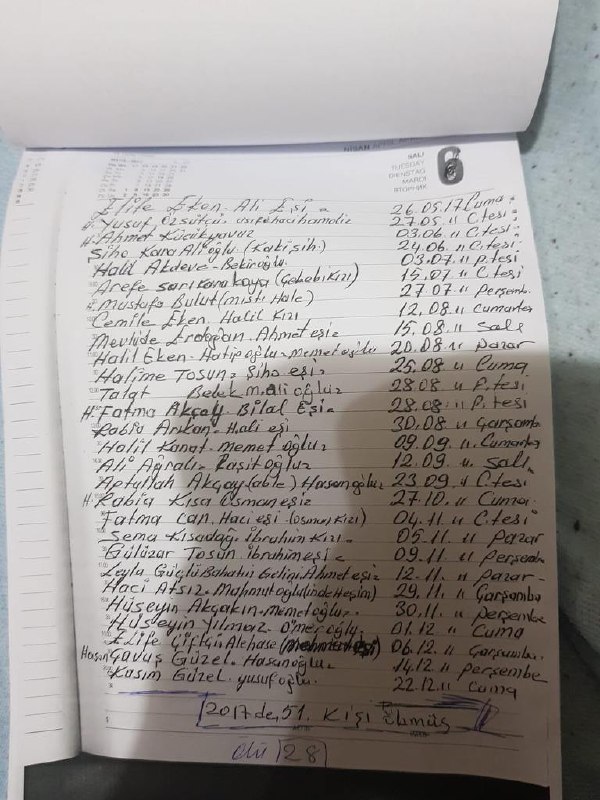 NİSAN
SALI
TUESDAY
DIENSTAG
MARDI
6
Elife Eken. Ali Eşi = 26.05.17 Cuma =
H. Yusuf Özsütçü. 27.05. " C.tesi =
H. Ahmet Küçükyavuz 03.06 " C.tesi =
Siho Kara Alioğlu. (Kakişih.) 24.06. " C.tesi
Halil Akdeve - Bekiroğlu. 03.07 " P.tesi
Arefe sarıkaraboya (Gababı Kızı) 15.07 " C.tesi
Mustafa Bulut (misti Hale) 27.07 " Perşembe
Cemile Eken. Halil Kızı 12,08 " Cumartesi
Mevlüde Erdoğan. Ahmet eşi = 15.08 " Salı
Halil Eken. Hatip oğlu = Memet oğlu 20.08 " Pazar
Halime Tosun = Şiho eşi = 25.08 " Cuma
Talat Bebek m.ali oğlu = 28.08 " P.tesi
H. Fatma Akçay. Bilal Eşi = 28.08 " P.tesi
Rabia Arıkan. Hali eşi 30.08 " Çarşamba
Halil Kanat. Memet oğlu = 09.09. " Cumartesi
Ali Ağralı = Raşit oğlu = 12.09. " Salı
Aptullah Akçay (able) Hasanoğlu = 23.09. " C.tesi
H. Rabia Kısa Osman eşi = 27.10. " Cuma.
Fatma can. Haci eşi (osman Kızı) 04.11. " C.tesi
Sema Kısadağ. ibrahim Kızı. = 05.11 " Pazar
Gülüzar Tosun ibrahim eşi = 09.11 " Perşembe
Leyla Güçlü Bahatin Gelini Ahmet eşi = 12.11. " Pazar -
Haci Atsız. Mahmut oğlu 29.11 " Çarşamba
Hüseyin Akçakın. Memet oğlu = 30.11 " perşembe
Hüseyin Yılmaz. Ömer oğlu. 01.12 " Cuma
Elife Çiftçi 06.12 " Çarşamba.
Hasan Çavuş Güzel. Hasanoğlu = 14.12 " perşembe
Kasım Güzel. yusuf oğlu. 22.12. " Cuma
2017 de, 51. Kişi ölmüş
ölü 28